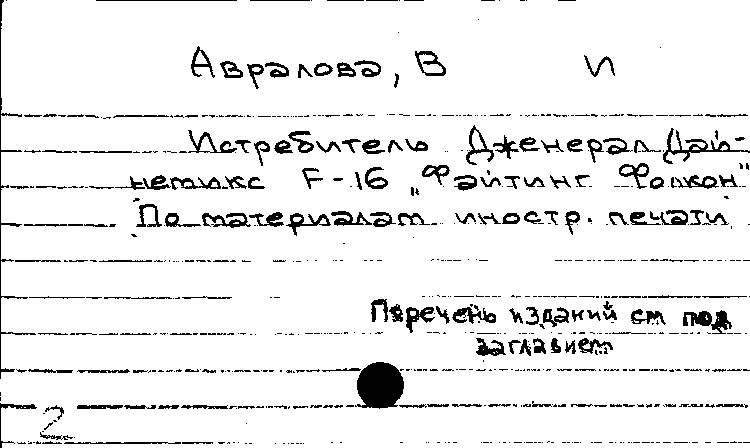 Авралова, В И
Истребитель Дженерал Дай-
немикс F-16 „Файтинг Фолкон"
По материалам иностр. печати
Перечень изданий см под
заглавием
2